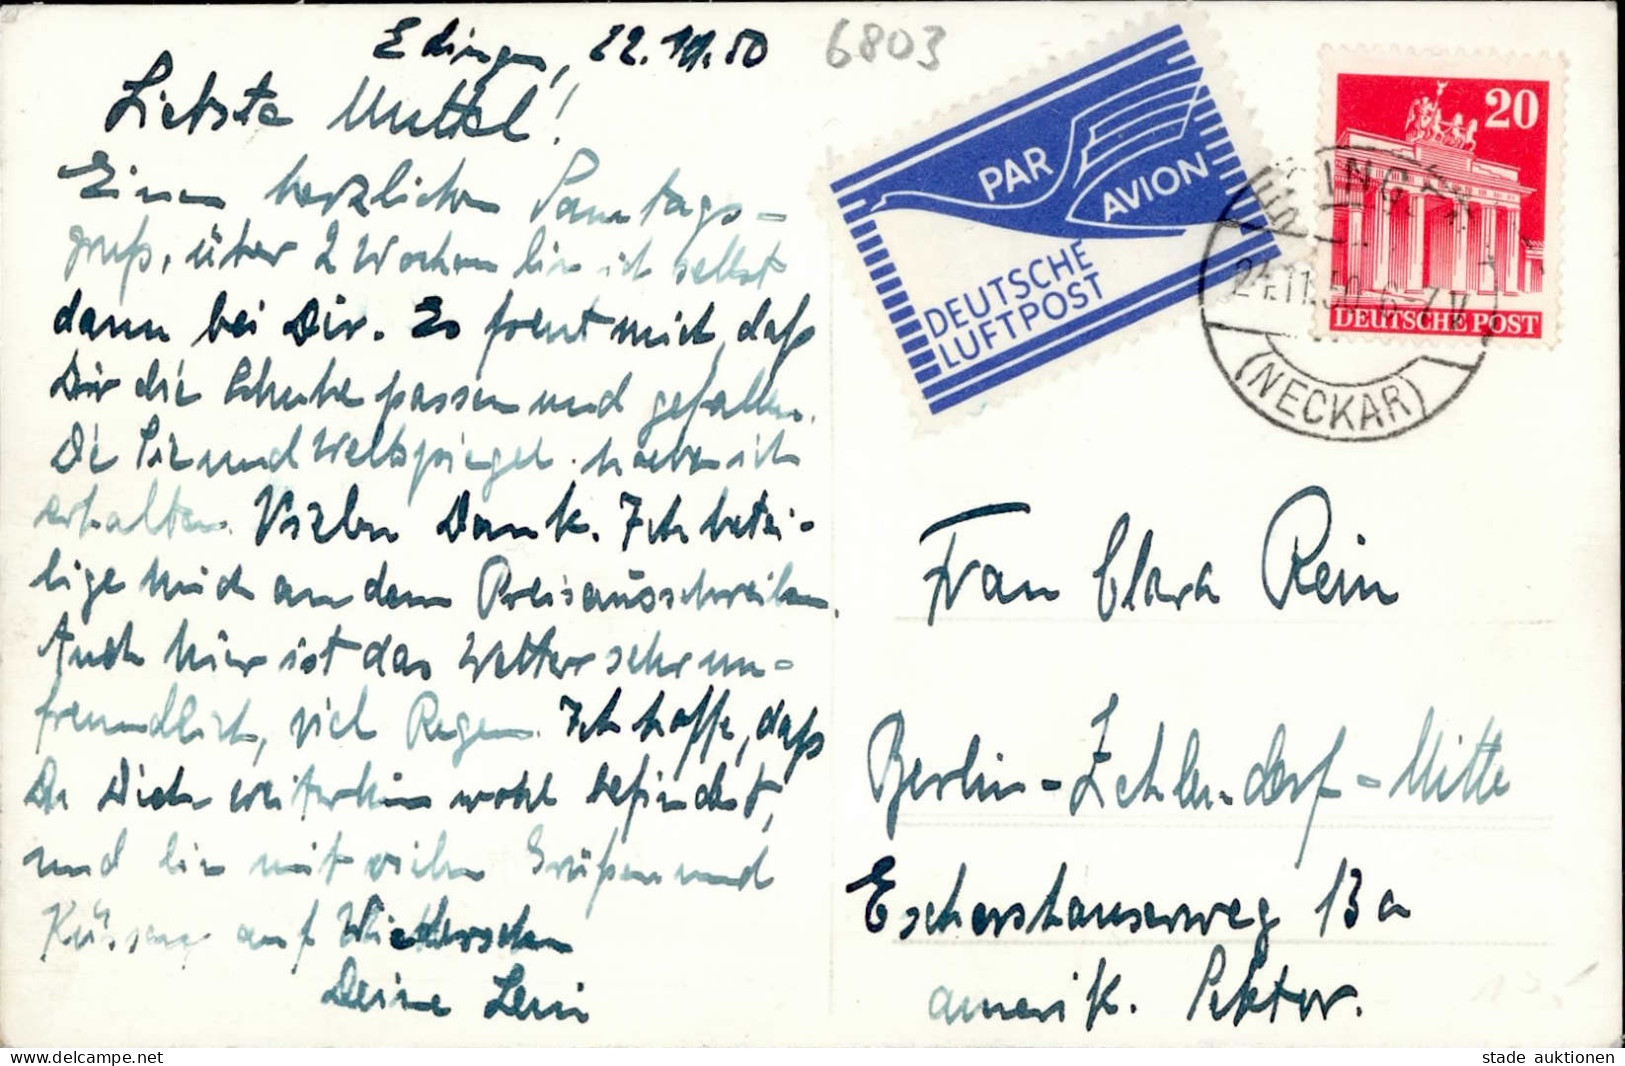 Edingen, 22.11.50
6803
Liebste Muttel!
Einen herzlichen Sonntags-
gruß, über 2 Wochen bin ich selbst
dann bei Dir. Es freut mich, daß
Dir die Schuhe passen und gefallen.
Die und Weltspiegel habe ich
erhalten. Vielen Dank. Ich betei-
lige mich an dem Preisausschreiben.
Auch hier ist das Wetter sehr un-
freundlich, viel Regen. Ich hoffe, daß
Du Dich weiterhin wohl befindest,
und bin mit vielen Grüßen und
Küssen auf Wiedersehen
Deine Leni
PAR AVION
DEUTSCHE
LUFTPOST
20
DEUTSCHE POST
24.11.50.6-7 V
(NECKAR)
Frau Clara Rein
Berlin-Zehlendorf-Mitte
Eschershauserweg 13a
amerik. Sektor.
stade auktionen